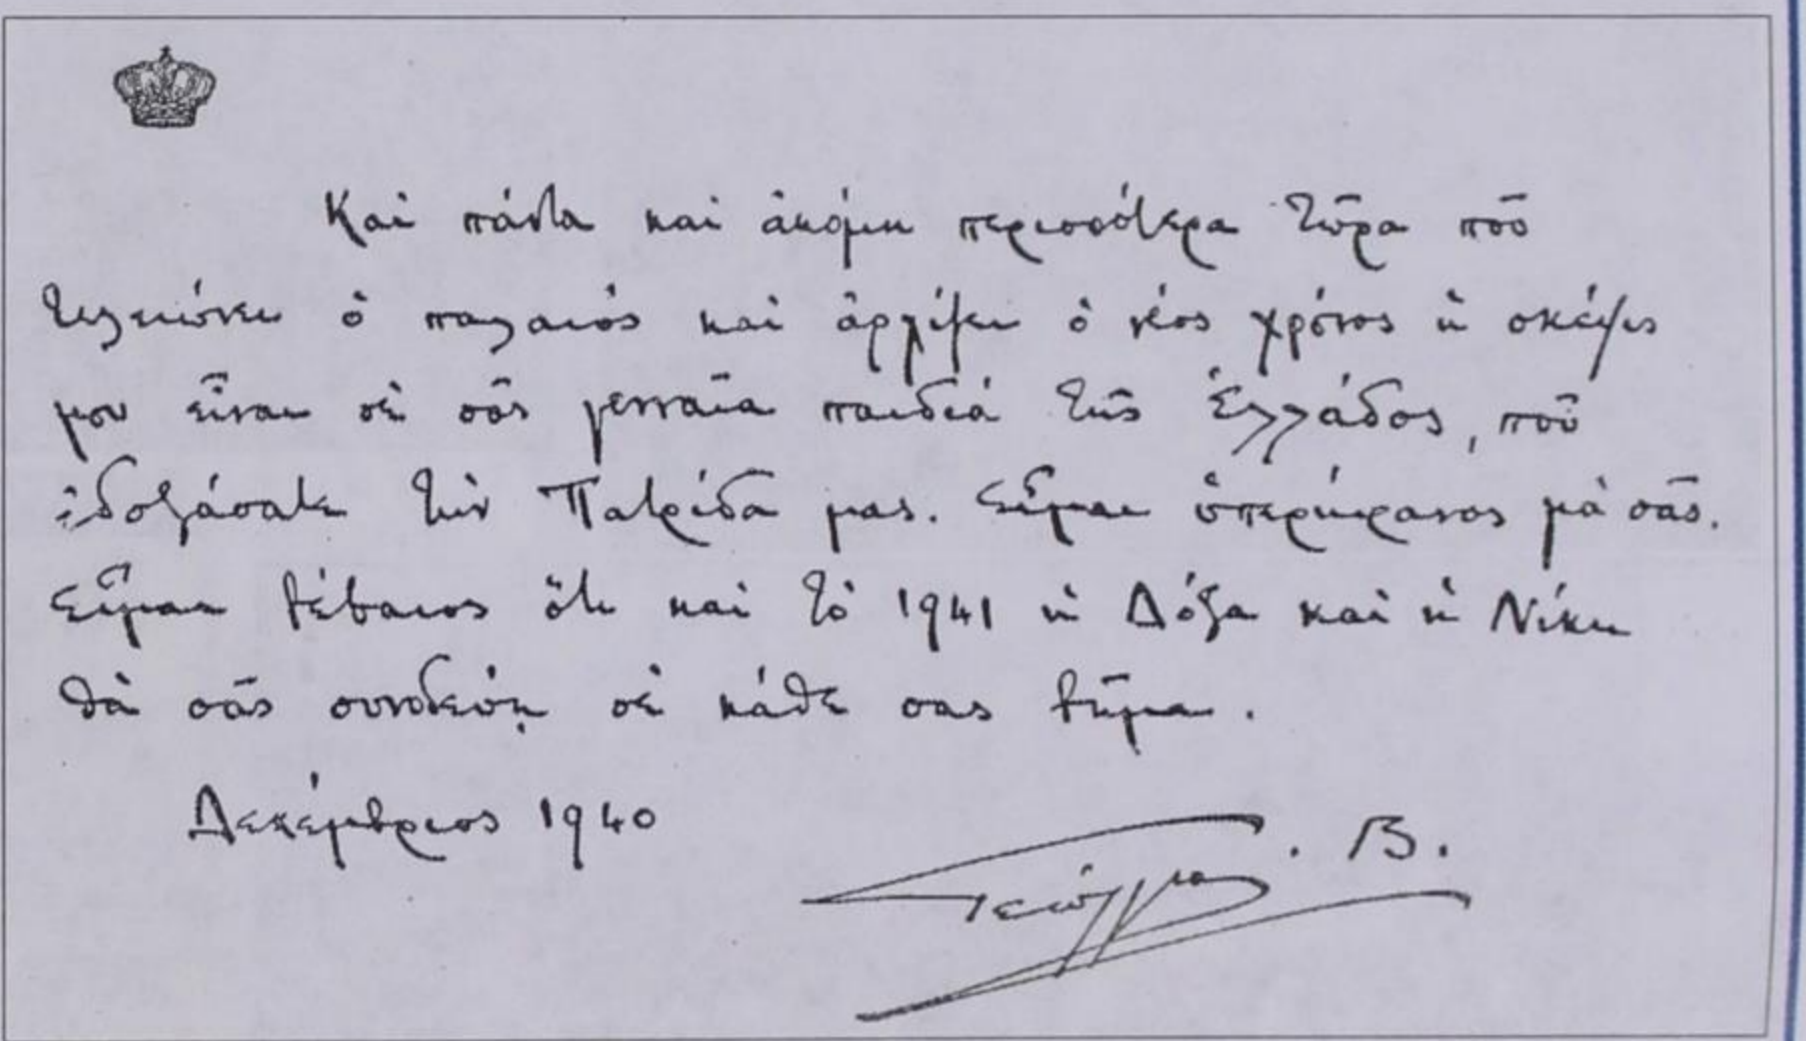 Καὶ πάντα καὶ ἀκόμη περισσότερα τῶρα ποῦ
τελειώνει ὁ παλαιὸς καὶ ἀρχίζει ὁ νέος χρόνος ἡ σκέψις
μου εἶναι σὲ σᾶς γενναῖα παιδιά τῆς Ἑλλάδος, ποῦ
ἐδοξάσατε τὴν Πατρίδα μας. Εἶμαι ὑπερήφανος γιὰ σᾶς.
Εἶμαι βέβαιος ὅτι καὶ τὸ 1941 ἡ Δόξα καὶ ἡ Νίκη
θὰ σᾶς συνοδεύῃ σὲ κάθε σας βῆμα.
Δεκέμβριος 1940
Γεώργιος. Β.